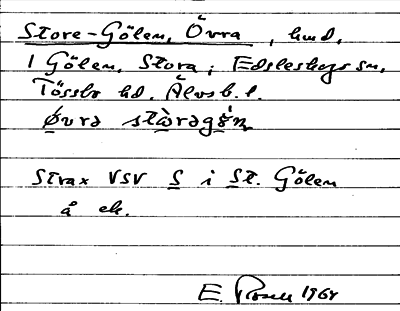 Store-Gölen, Övra, hmd,
1 Gölen, Stora; Edsleskogs sn,
Tössbo hd. Älvsb. l.
øvrə stɷ̀rəgǿ́n

Strax VSV S i St. Gölen
å ek.

E. Rosell 1964